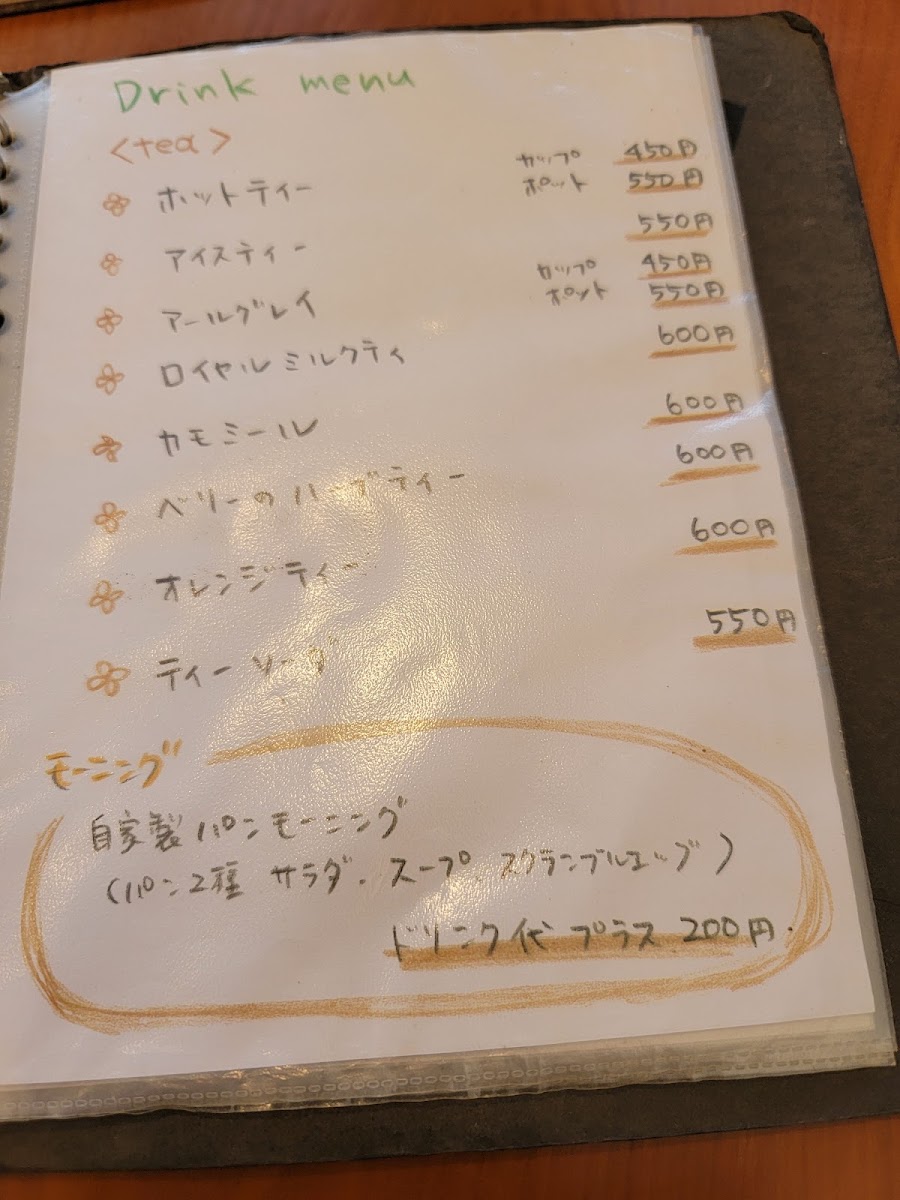 Drink menu
<tea>
ホットティー カップ 450円
ポット 550円
アイスティー 550円
アールグレイ カップ 450円
ポット 550円
ロイヤルミルクティ 600円
カモミール 600円
ベリーのハーブティー 600円
オレンジティー 600円
ティーソーダ 550円
モーニング
自家製パンモーニング
(パン2種 サラダ、スープ、スクランブルエッグ)
ドリンク代プラス200円.